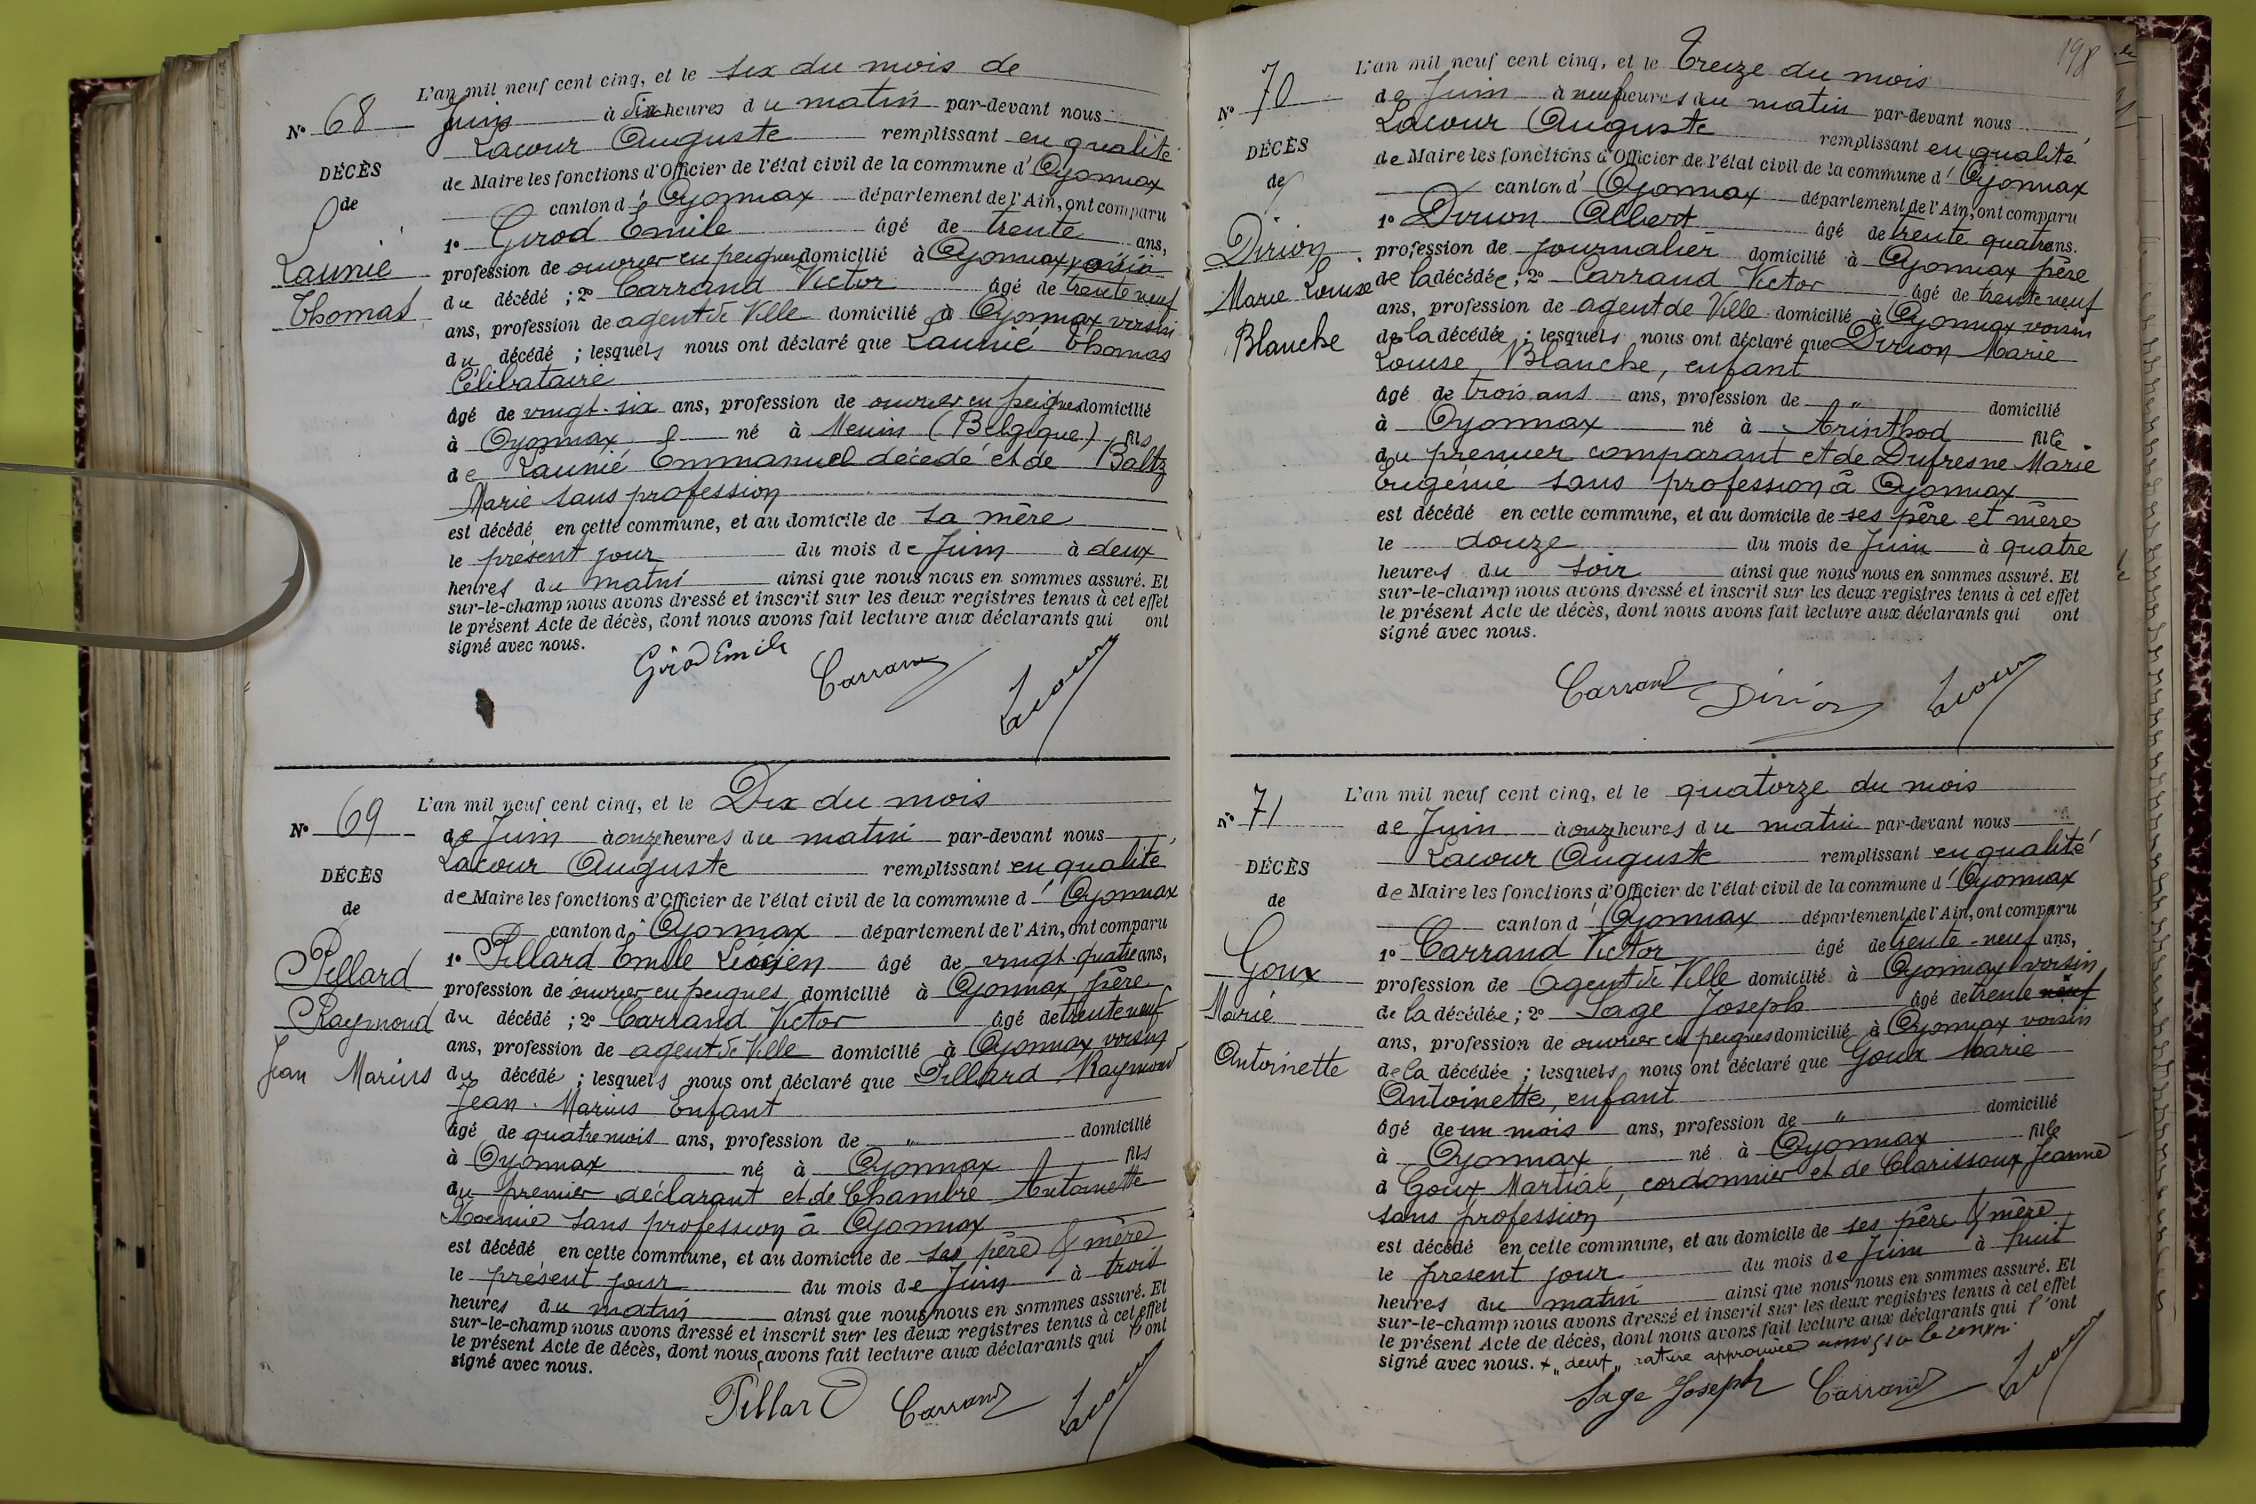 L'an mil neuf cent cinq, et le six du mois de
N° 68 Juin à dix heures du matin par-devant nous
Lacour Auguste remplissant en qualité
DÉCÈS de Maire les fonctions d'Officier de l'état civil de la commune d'Oyonnax
de canton d'Oyonnax département de l'Ain, ont comparu
1° Girod Emile âgé de trente ans,
Launié profession de ouvrier en peignes domicilié à Oyonnax voisin
du décédé ; 2° Carrand Victor âgé de trente neuf
Thomas ans, profession de agent de Ville domicilié à Oyonnax voisin
du décédé ; lesquels nous ont déclaré que Launié Thomas
Célibataire
âgé de vingt-six ans, profession de ouvrier en peignes domicilié
à Oyonnax né à Menin (Belgique) fils
de Launié Emmanuel décédé et de Baltz
Marie sans profession
est décédé en cette commune, et au domicile de sa mère
le présent jour du mois de Juin à deux
heures du matin ainsi que nous nous en sommes assuré. Et
sur-le-champ nous avons dressé et inscrit sur les deux registres tenus à cet effet
le présent Acte de décès, dont nous avons fait lecture aux déclarants qui ont
signé avec nous.
Girod Emile Carrand Lacour
L'an mil neuf cent cinq, et le Dix du mois
N° 69 de Juin à onze heures du matin par-devant nous
Lacour Auguste remplissant en qualité
DÉCÈS de Maire les fonctions d'Officier de l'état civil de la commune d'Oyonnax
de canton d'Oyonnax département de l'Ain, ont comparu
Pillard 1° Pillard Emile Lucien âgé de vingt-quatre ans,
profession de ouvrier en peignes domicilié à Oyonnax père
Raymond du décédé ; 2° Carrand Victor âgé de trente neuf
ans, profession de agent de Ville domicilié à Oyonnax voisin
Jean Marius du décédé ; lesquels nous ont déclaré que Pillard Raymond
Jean Marius Enfant
âgé de quatre mois ans, profession de " domicilié
à Oyonnax né à Oyonnax fils
du premier déclarant et de Chambre Antoinette
Noémie sans profession à Oyonnax
est décédé en cette commune, et au domicile de ses père & mère
le présent jour du mois de Juin à trois
heures du matin ainsi que nous nous en sommes assuré. Et
sur-le-champ nous avons dressé et inscrit sur les deux registres tenus à cet effet
le présent Acte de décès, dont nous avons fait lecture aux déclarants qui l'ont
signé avec nous.
Pillard Carrand Lacour
198
L'an mil neuf cent cinq, et le Treize du mois
N° 70 de Juin à neuf heures du matin par-devant nous
Lacour Auguste remplissant en qualité
DÉCÈS de Maire les fonctions d'Officier de l'état civil de la commune d'Oyonnax
de canton d'Oyonnax département de l'Ain, ont comparu
1° Dirion Albert âgé de trente quatre ans.
Dirion profession de journalier domicilié à Oyonnax père
Marie Louise de la décédée ; 2° Carrand Victor âgé de trente neuf
ans, profession de agent de Ville domicilié à Oyonnax voisin
Blanche de la décédée ; lesquels nous ont déclaré que Dirion Marie
Louise Blanche, enfant
âgé de trois ans ans, profession de " domicilié
à Oyonnax né à Arinthod fille
du premier comparant et de Dufresne Marie
Eugénie sans profession à Oyonnax
est décédé en cette commune, et au domicile de ses père et mère
le douze du mois de Juin à quatre
heures du soir ainsi que nous nous en sommes assuré. Et
sur-le-champ nous avons dressé et inscrit sur les deux registres tenus à cet effet
le présent Acte de décès, dont nous avons fait lecture aux déclarants qui ont
signé avec nous.
Carrand Dirion Lacour
L'an mil neuf cent cinq, et le quatorze du mois
N° 71 de Juin à onze heures du matin par-devant nous
Lacour Auguste remplissant en qualité
DÉCÈS de Maire les fonctions d'Officier de l'état civil de la commune d'Oyonnax
de canton d'Oyonnax département de l'Ain, ont comparu
1° Carrand Victor âgé de trente-neuf ans,
Goux profession de Agent de Ville domicilié à Oyonnax voisin
Marie de la décédée ; 2° Sage Joseph âgé de trente neuf
ans, profession de ouvrier en peignes domicilié à Oyonnax voisin
Antoinette de la décédée ; lesquels nous ont déclaré que Goux Marie
Antoinette, enfant
âgé de un mois ans, profession de " domicilié
à Oyonnax né à Oyonnax fille
d Goux Martial, cordonnier et de Clarissoux Jeanne
sans profession
est décédé en cette commune, et au domicile de ses père & mère
le present jour du mois de Juin à huit
heures du matin ainsi que nous nous en sommes assuré. Et
sur-le-champ nous avons dressé et inscrit sur les deux registres tenus à cet effet
le présent Acte de décès, dont nous avons fait lecture aux déclarants qui l'ont
signé avec nous. x "neuf" rature approuvée
Sage Joseph Carrand Lacour